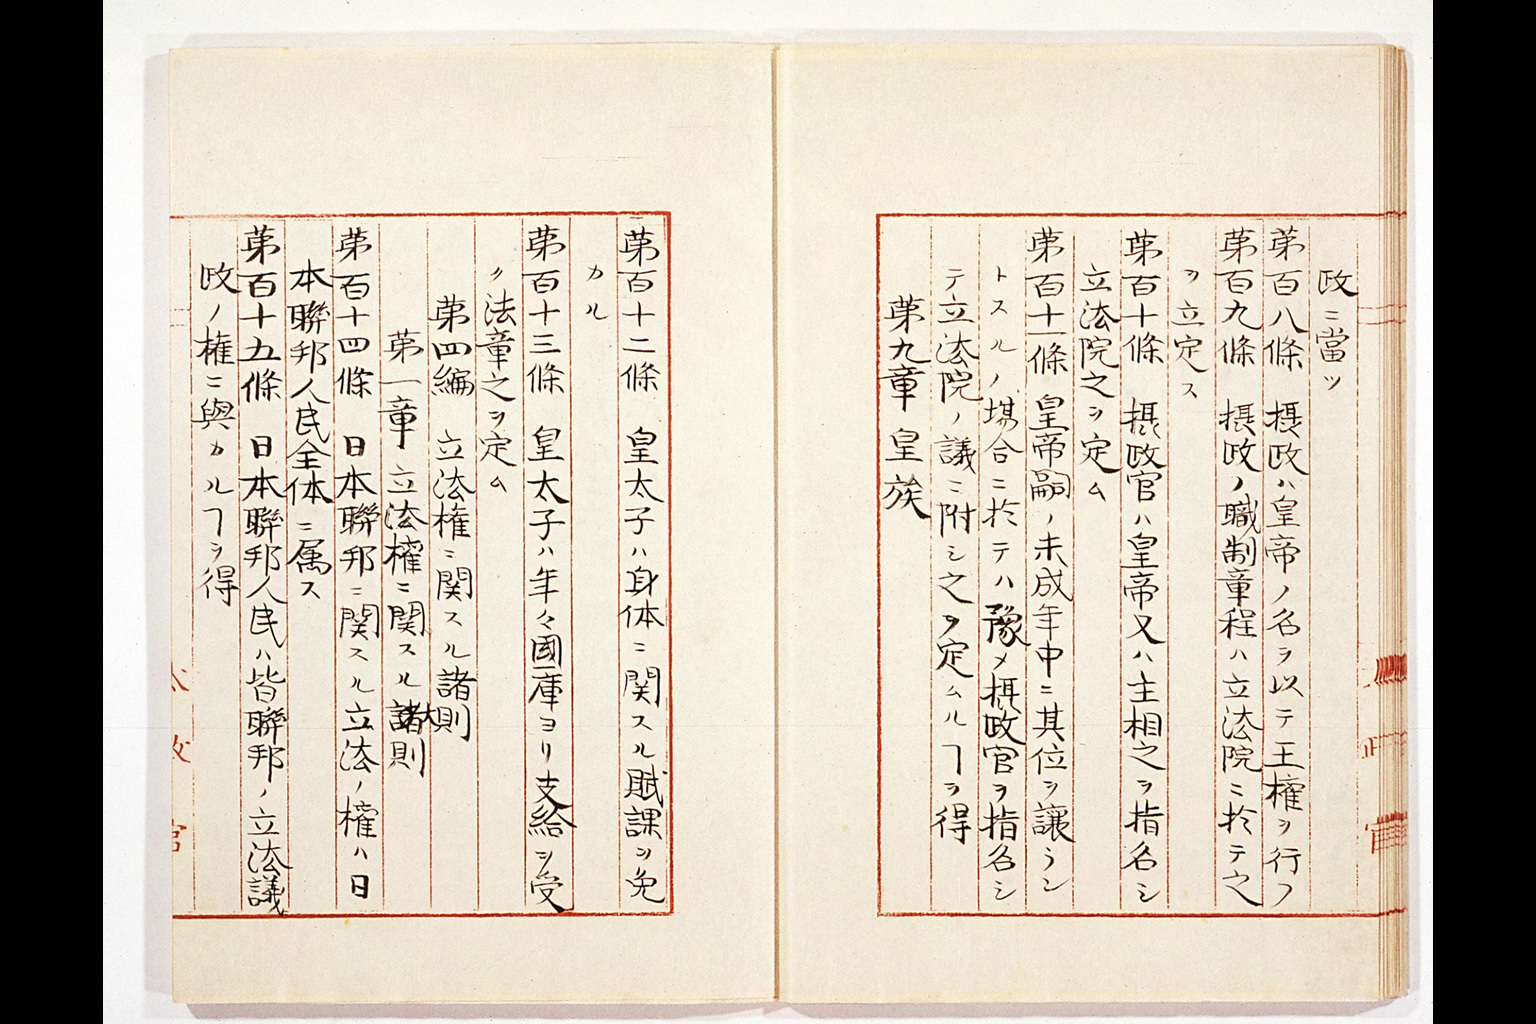 政ニ當ツ
第百八條　摂政ハ皇帝ノ名ヲ以テ王權ヲ行フ
第百九條　摂政ノ職制章程ハ立法院ニ於テ之
ヲ立定ス
第百十條　摂政官ハ皇帝又ハ主相之ヲ指名シ
立法院之ヲ定ム
第百十一條　皇帝嗣ノ未成年中ニ其位ヲ譲ラン
トスルノ場合ニ於テハ豫メ摂政官ヲ指名シ
テ立法院ノ議ニ附シ之ヲ定ムルヿヲ得
第九章　皇族
第百十二條　皇太子ハ身体ニ関スル賦課ヲ免
カル
第百十三條　皇太子ハ年々國庫ヨリ支給ヲ受
ク法章之ヲ定ム
第四編　立法權ニ関スル諸則
第一章　立法權ニ関スル大則
第百十四條　日本聯邦ニ関スル立法ノ權ハ日
本聯邦人民全体ニ属ス
第百十五條　日本聯邦人民ハ皆聯邦ノ立法議
政ノ權ニ與カルヿヲ得
政官